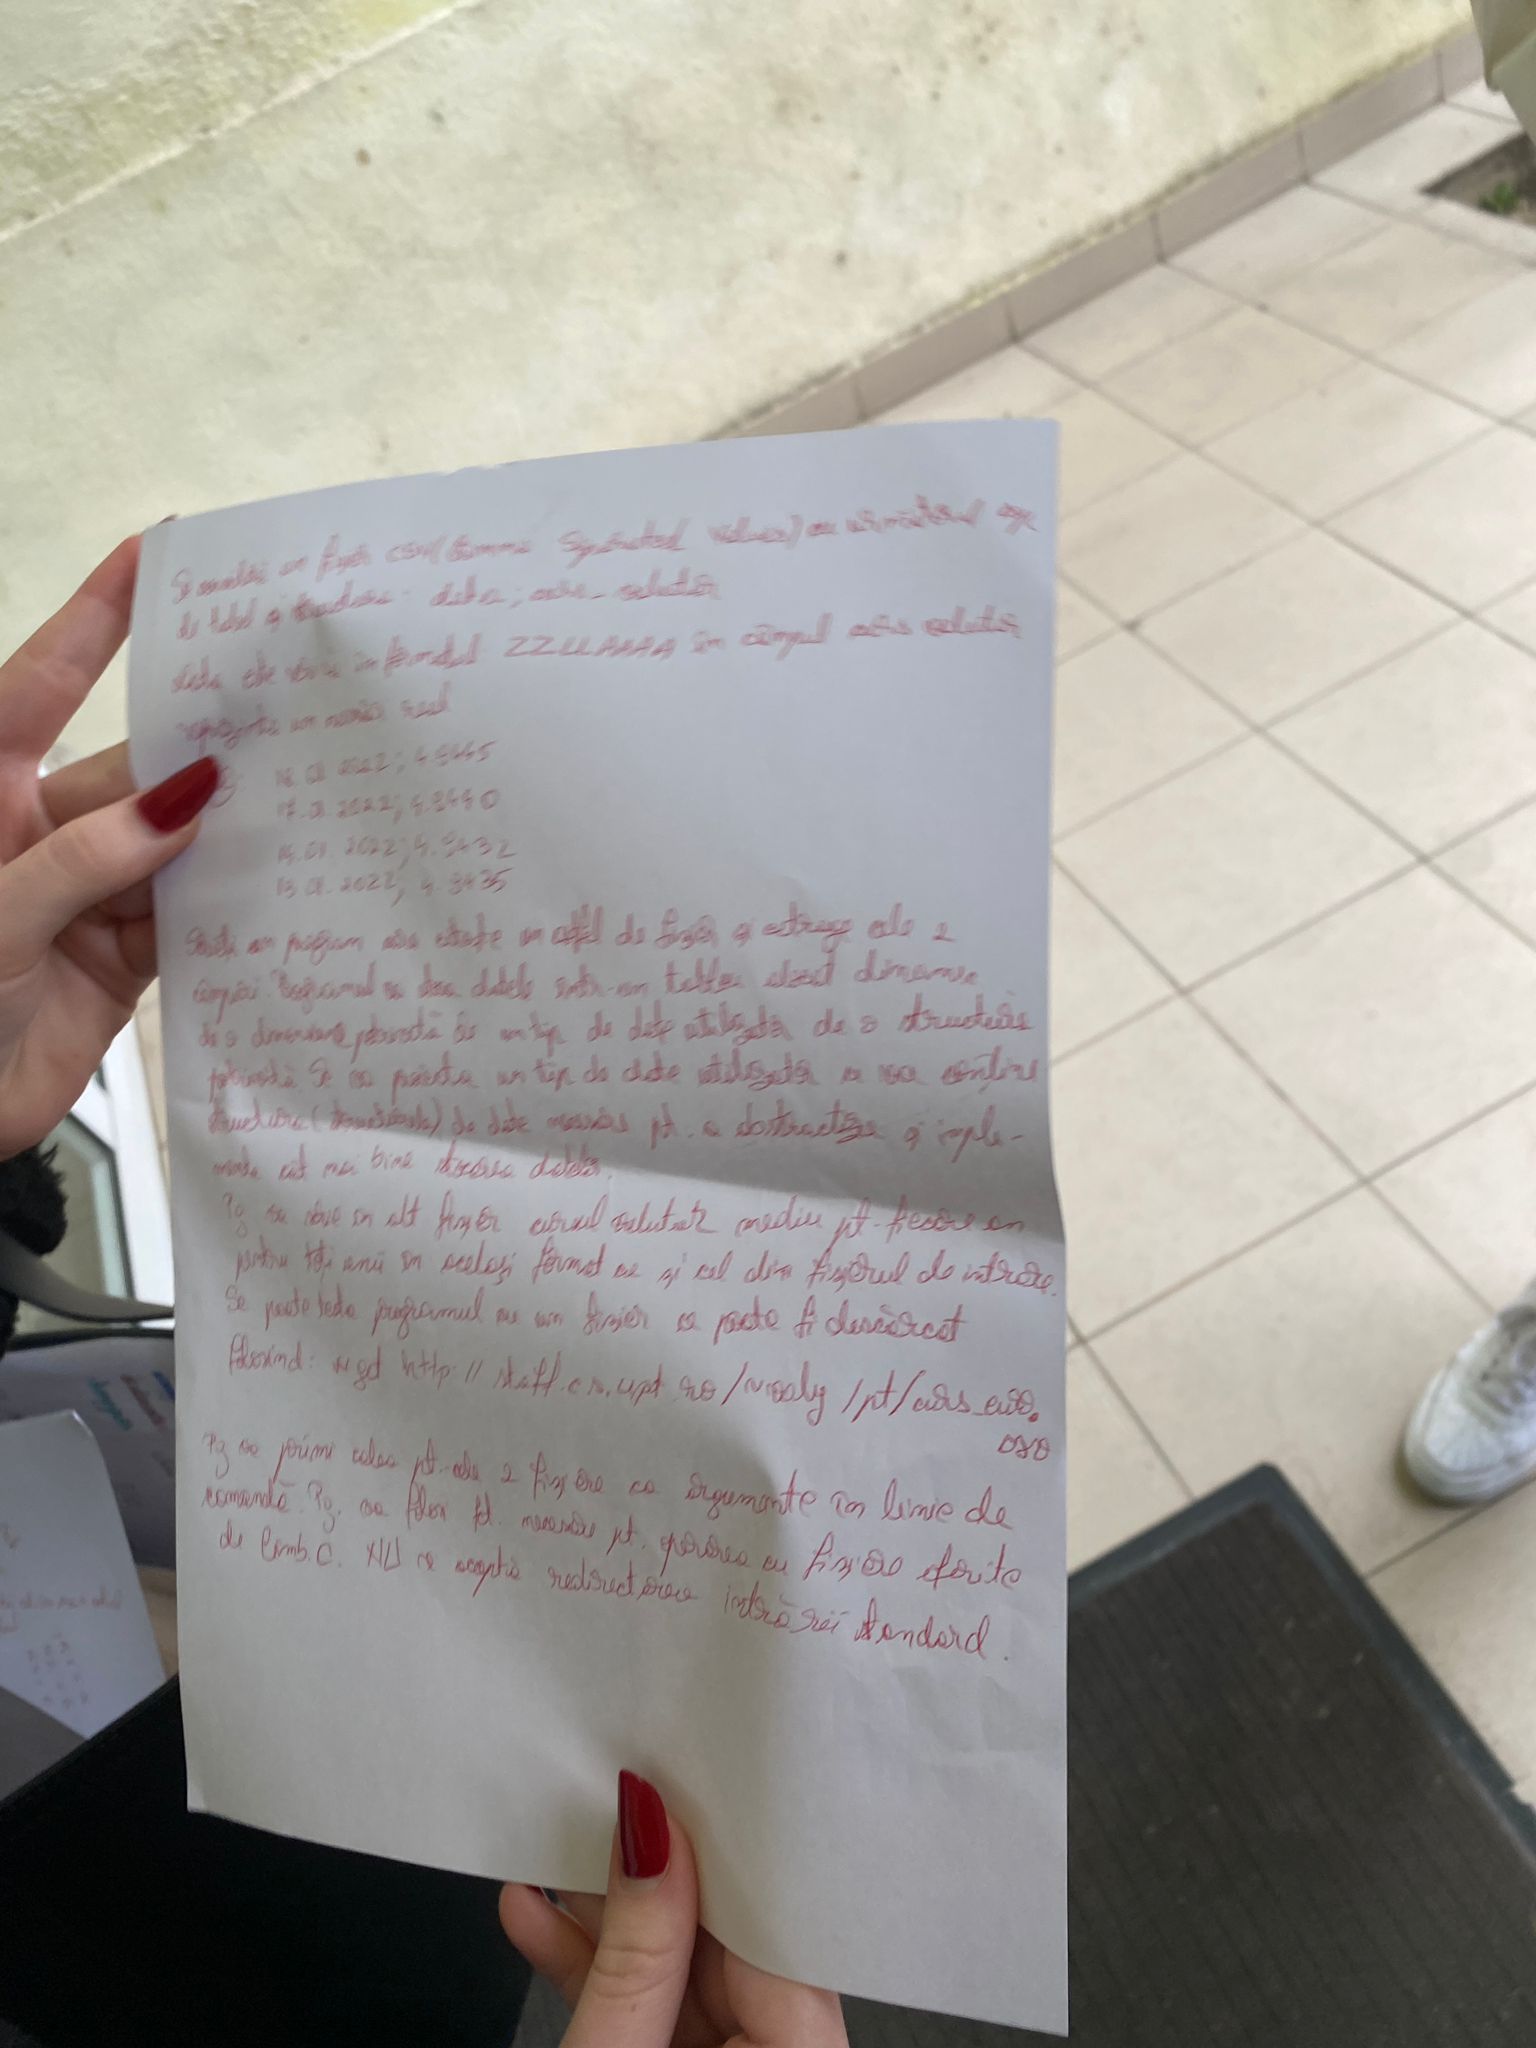 un fișier CSV (Comma Separated Values) cu următorul cap
de tabel și : data; curs_valutar
data este în formatul ZZLLAAAA în câmpul curs valutar
reprezintă un număr real
18.01.2022; 4.9445
17.01.2022; 4.9440
14.01.2022; 4.9432
13.01.2022; 4.9435
un program care citește un astfel de fișier și extrage cele 2
câmpuri. Programul va datele într-un tablou alocat dinamic
de o dimensiune potrivită un tip de date utilizator de o structură
potrivită. Se va un tip de date utilizator ce va conține
structura (structurile) de date necesare pt. a abstractiza și imple-
menta cât mai bine stocarea datelor.
Pg va scrie în alt fișier cursul valutar mediu pt. fiecare an
pentru toți anii în același format ca și cel din fișierul de intrare.
Se poate testa programul cu un fișier ce poate fi descărcat
folosind: wget http://staff.cs.upt.ro/ /pt/curs_euro.
csv
Pg va primi calea pt. cele 2 fișiere ca argumente în linie de
comandă. Pg. va folosi fct. necesare pt. operarea cu fișiere oferite
de limb. C. NU se acceptă redirectarea intrării standard.